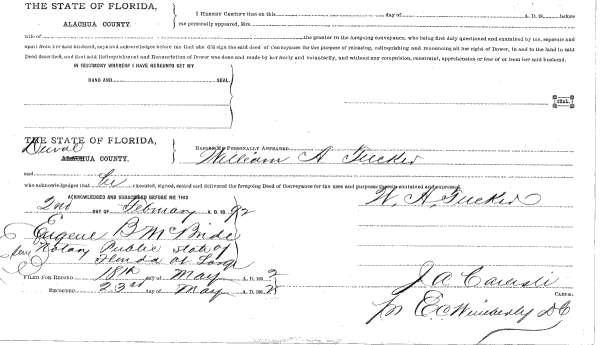 THE STATE OF FLORIDA,
ALACHUA COUNTY.
I HEREBY CERTIFY that on this day of A. D. 18 before
me personally appeared, Mrs.
wife of the grantor in the foregoing conveyance, who being first duly questioned and examined by me, separate and
apart from her said husband, says and acknowledges before me that she did sign the said deed of Conveyance for the purpose of releasing, relinquishing and renouncing all her right of Dower, in and to the land in said
Deed described, and that said Relinquishment and Renunciation of Dower was done and made by her freely and voluntarily, and without any compulsion, constraint, apprehension or fear of or from her said husband.
IN TESTIMONY WHEREOF I HAVE HEREUNTO SET MY
HAND AND SEAL.
SEAL.
THE STATE OF FLORIDA,
Duval
ALACHUA COUNTY.
BEFORE ME PERSONALLY APPEARED
William A Tucker
and
who acknowledges that he executed, signed, sealed and delivered the foregoing Deed of Conveyance for the uses and purposes therein contained and expressed.
ACKNOWLEDGED AND SUBSCRIBED BEFORE ME THIS
W. A. Tucker
2nd DAY OF February A. D. 1892
Eugene B McBride
Notary Public State of
Florida at Large
FILED FOR RECORD 18th day of May A. D. 1892
RECORDED 23rd day of May A. D. 1892
J A Carlisle
CLERK.
E C Wimberly D C